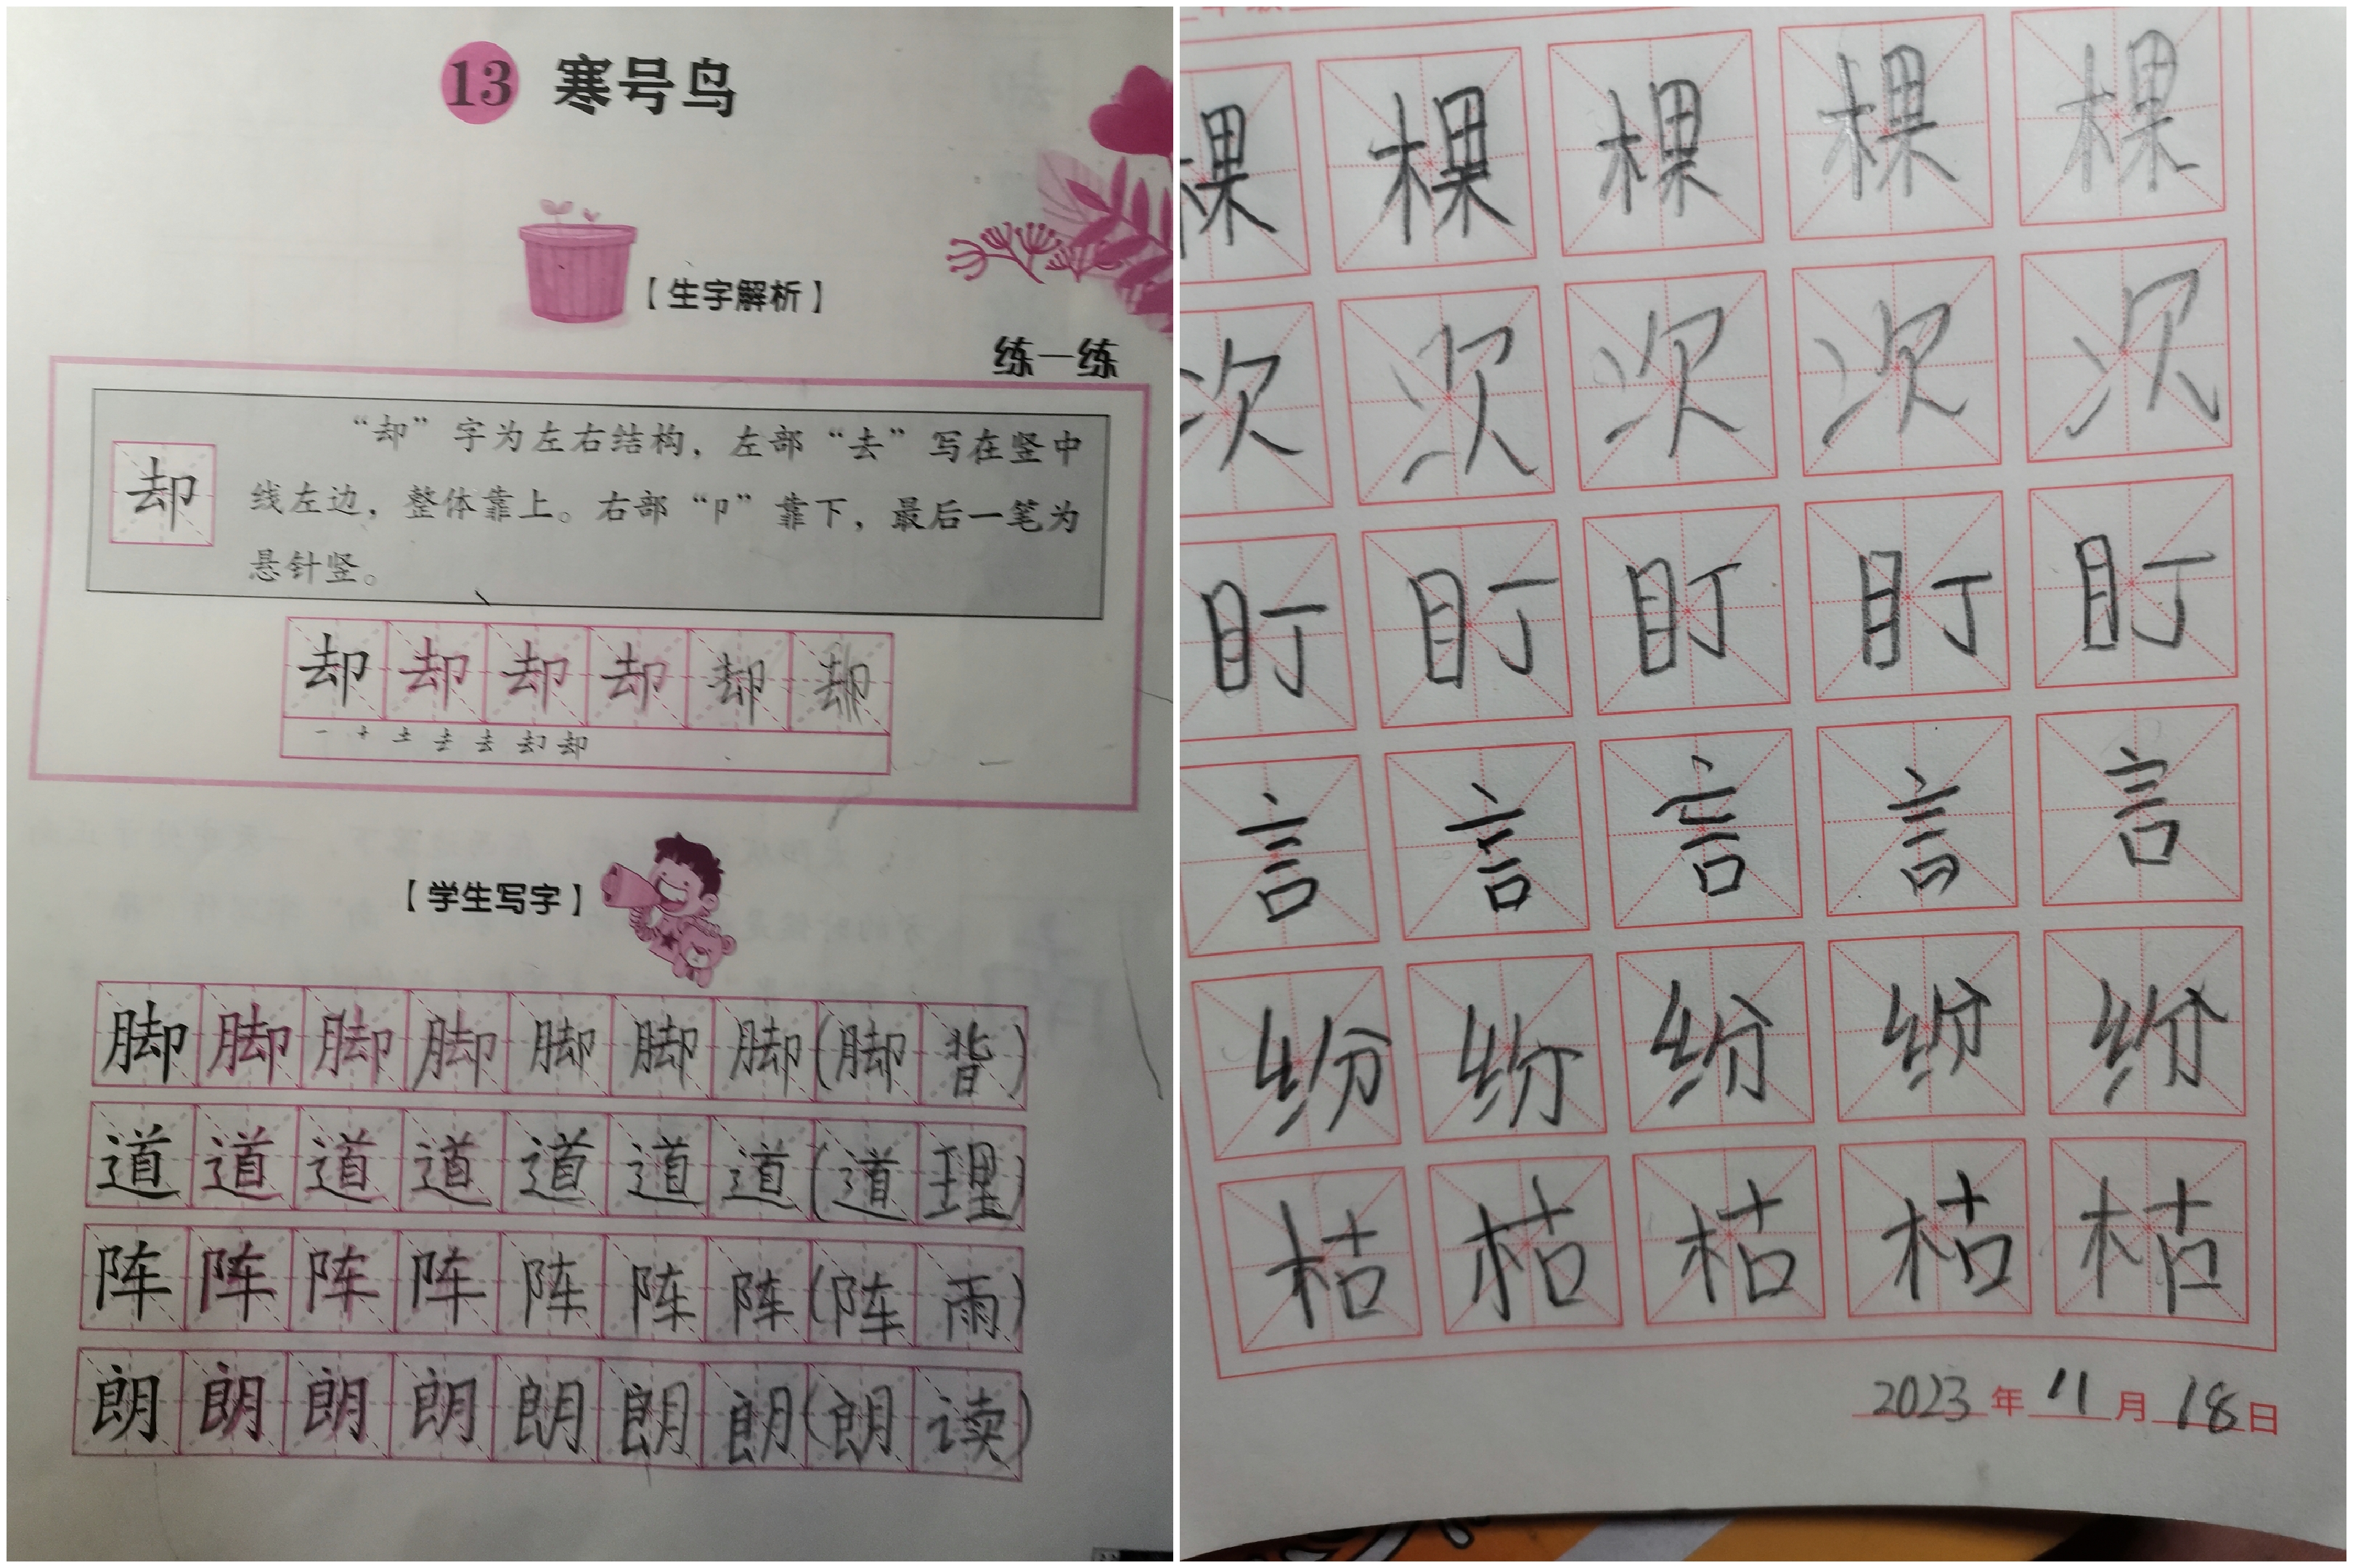 13 寒号鸟
【生字解析】
练一练
却
“却”字为左右结构，左部“去”写在竖中
线左边，整体靠上。右部“卩”靠下，最后一笔为
悬针竖。
却却却却却却
【学生写字】
脚脚脚脚脚脚脚(脚背)
道道道道道道道(道理)
阵阵阵阵阵阵阵(阵雨)
朗朗朗朗朗朗朗(朗读)
棵棵棵棵棵
次次次次次
盯盯盯盯盯
言言言言言
纷纷纷纷纷
枯枯枯枯枯
2023年11月18日